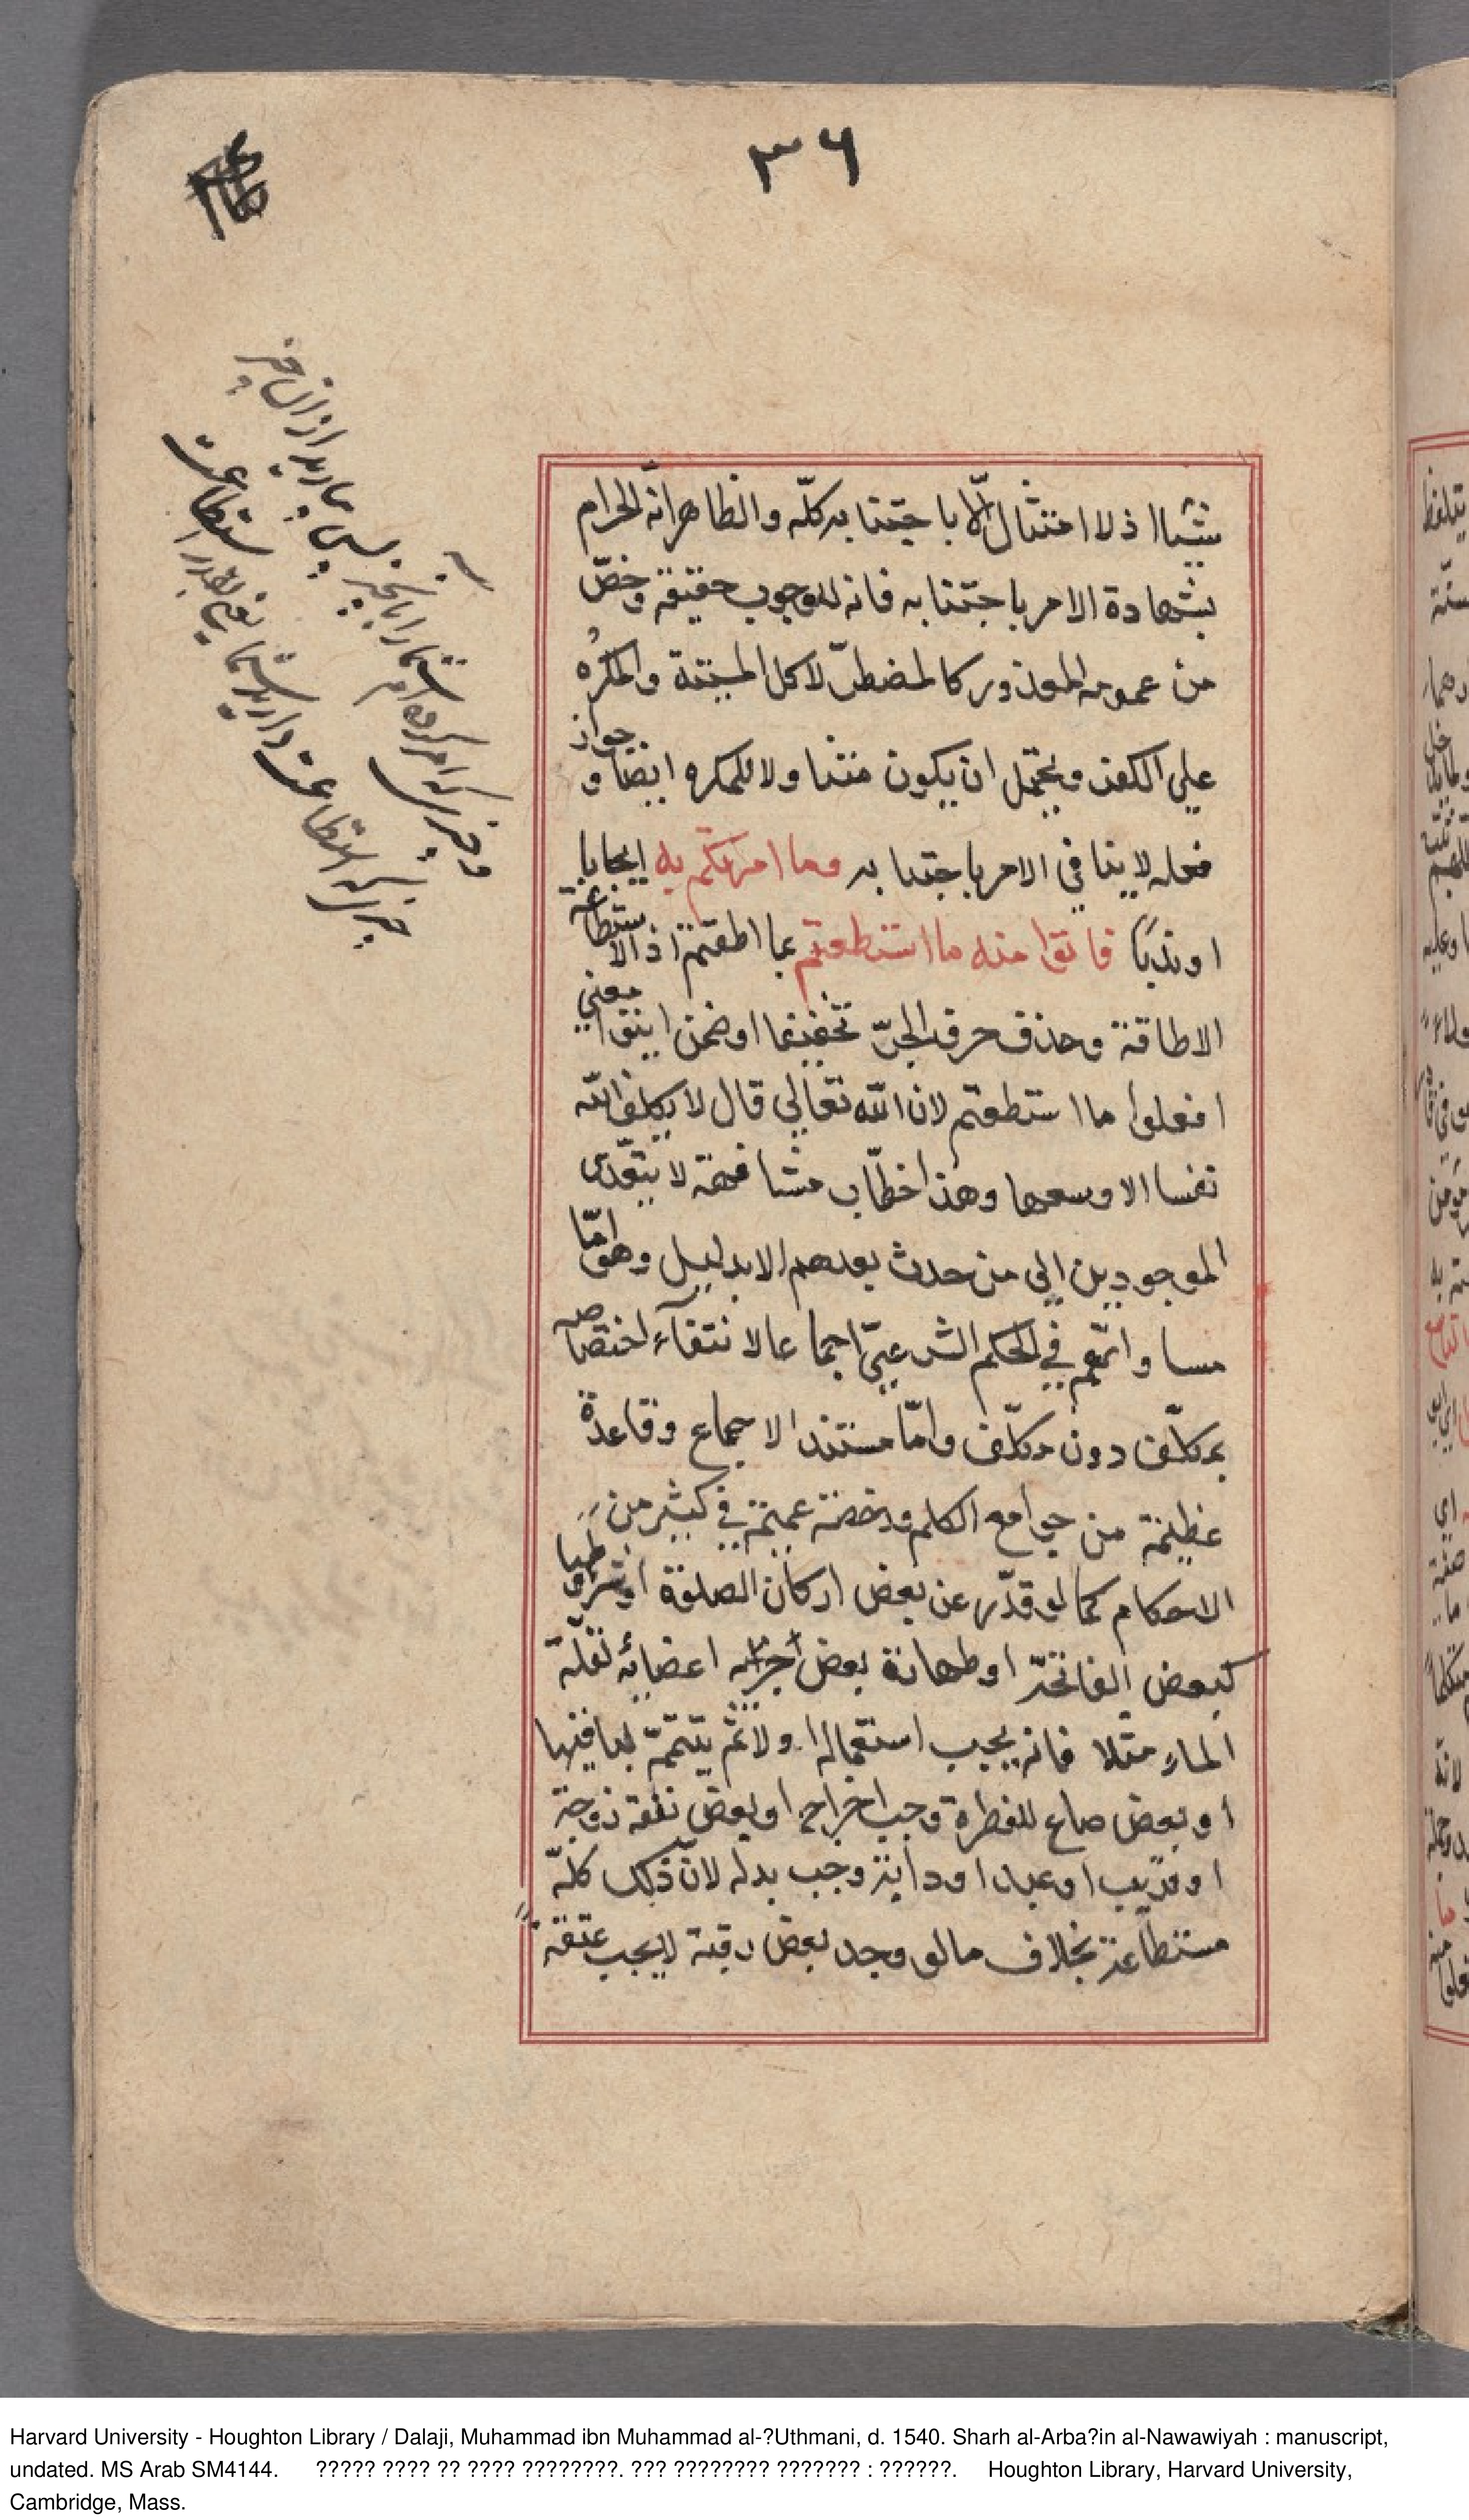 ٣٦
شيئا اذ لا امتثال الّا باجتنابه كلّه والظاهر انّه الحرام
بشهادة الامر باجتنابه فانه للوجوب حقيقة وخصّ
من عمومه المعذور كالمضطرّ لاكل الميتة والمكرَه
علي الكفر ويحتمل ان يكون متناولا للمكره ايضا و جواز
فعله لا ينافي الامر باجتنابه وما امرتكم به ايجابا
او ندبًا فاتوا منه ما استطعتم بما اطقتم اذ الاستطاعة
الاطاقة وحذف حرف الجرّ تخفيفا او ضمن ايتوا معني
افعلوا ما استطعتم لان الله تعالي قال لا يكلف الله
نفسا الا وسعها وهذا خطّاب مشافهة لا يتعّدى
الموجودين الي من حدث بعدهم الا بدليل وهو امّا
مساواتهم في الحكم الشرعيّ اجماعا لانتفاء اختصاصه
بمكلّف دون مكلّف وامّا مستند الاجماع وقاعدة
عظيمة من جوامع الكلم ورخصة عميمة في كثير من
الاحكام كما لو قدّر عن بعض اركان الصلوة او شروطها
كبعض الفاتحة او طهارة بعض اعضائه لقلّة
الماء مثلا فانه يجب استعماله اولا ثمّ يتيمّم لباقيها
او بعض صاع للفطرة وجب اخراجه او بعض نفقة زوجة
او قريب او عبد او دابة وجب بذله لانّ ذلك كلّه
مستطاعة بخلاف ما لو وجد بعض رقبة لا يجب عتقه
و چيزى كه امر كرده ام شما را بانچيز پس بياريد ازان چيز
چيزى كه استطاعت داريد شما يعنى بقدر استطاعت